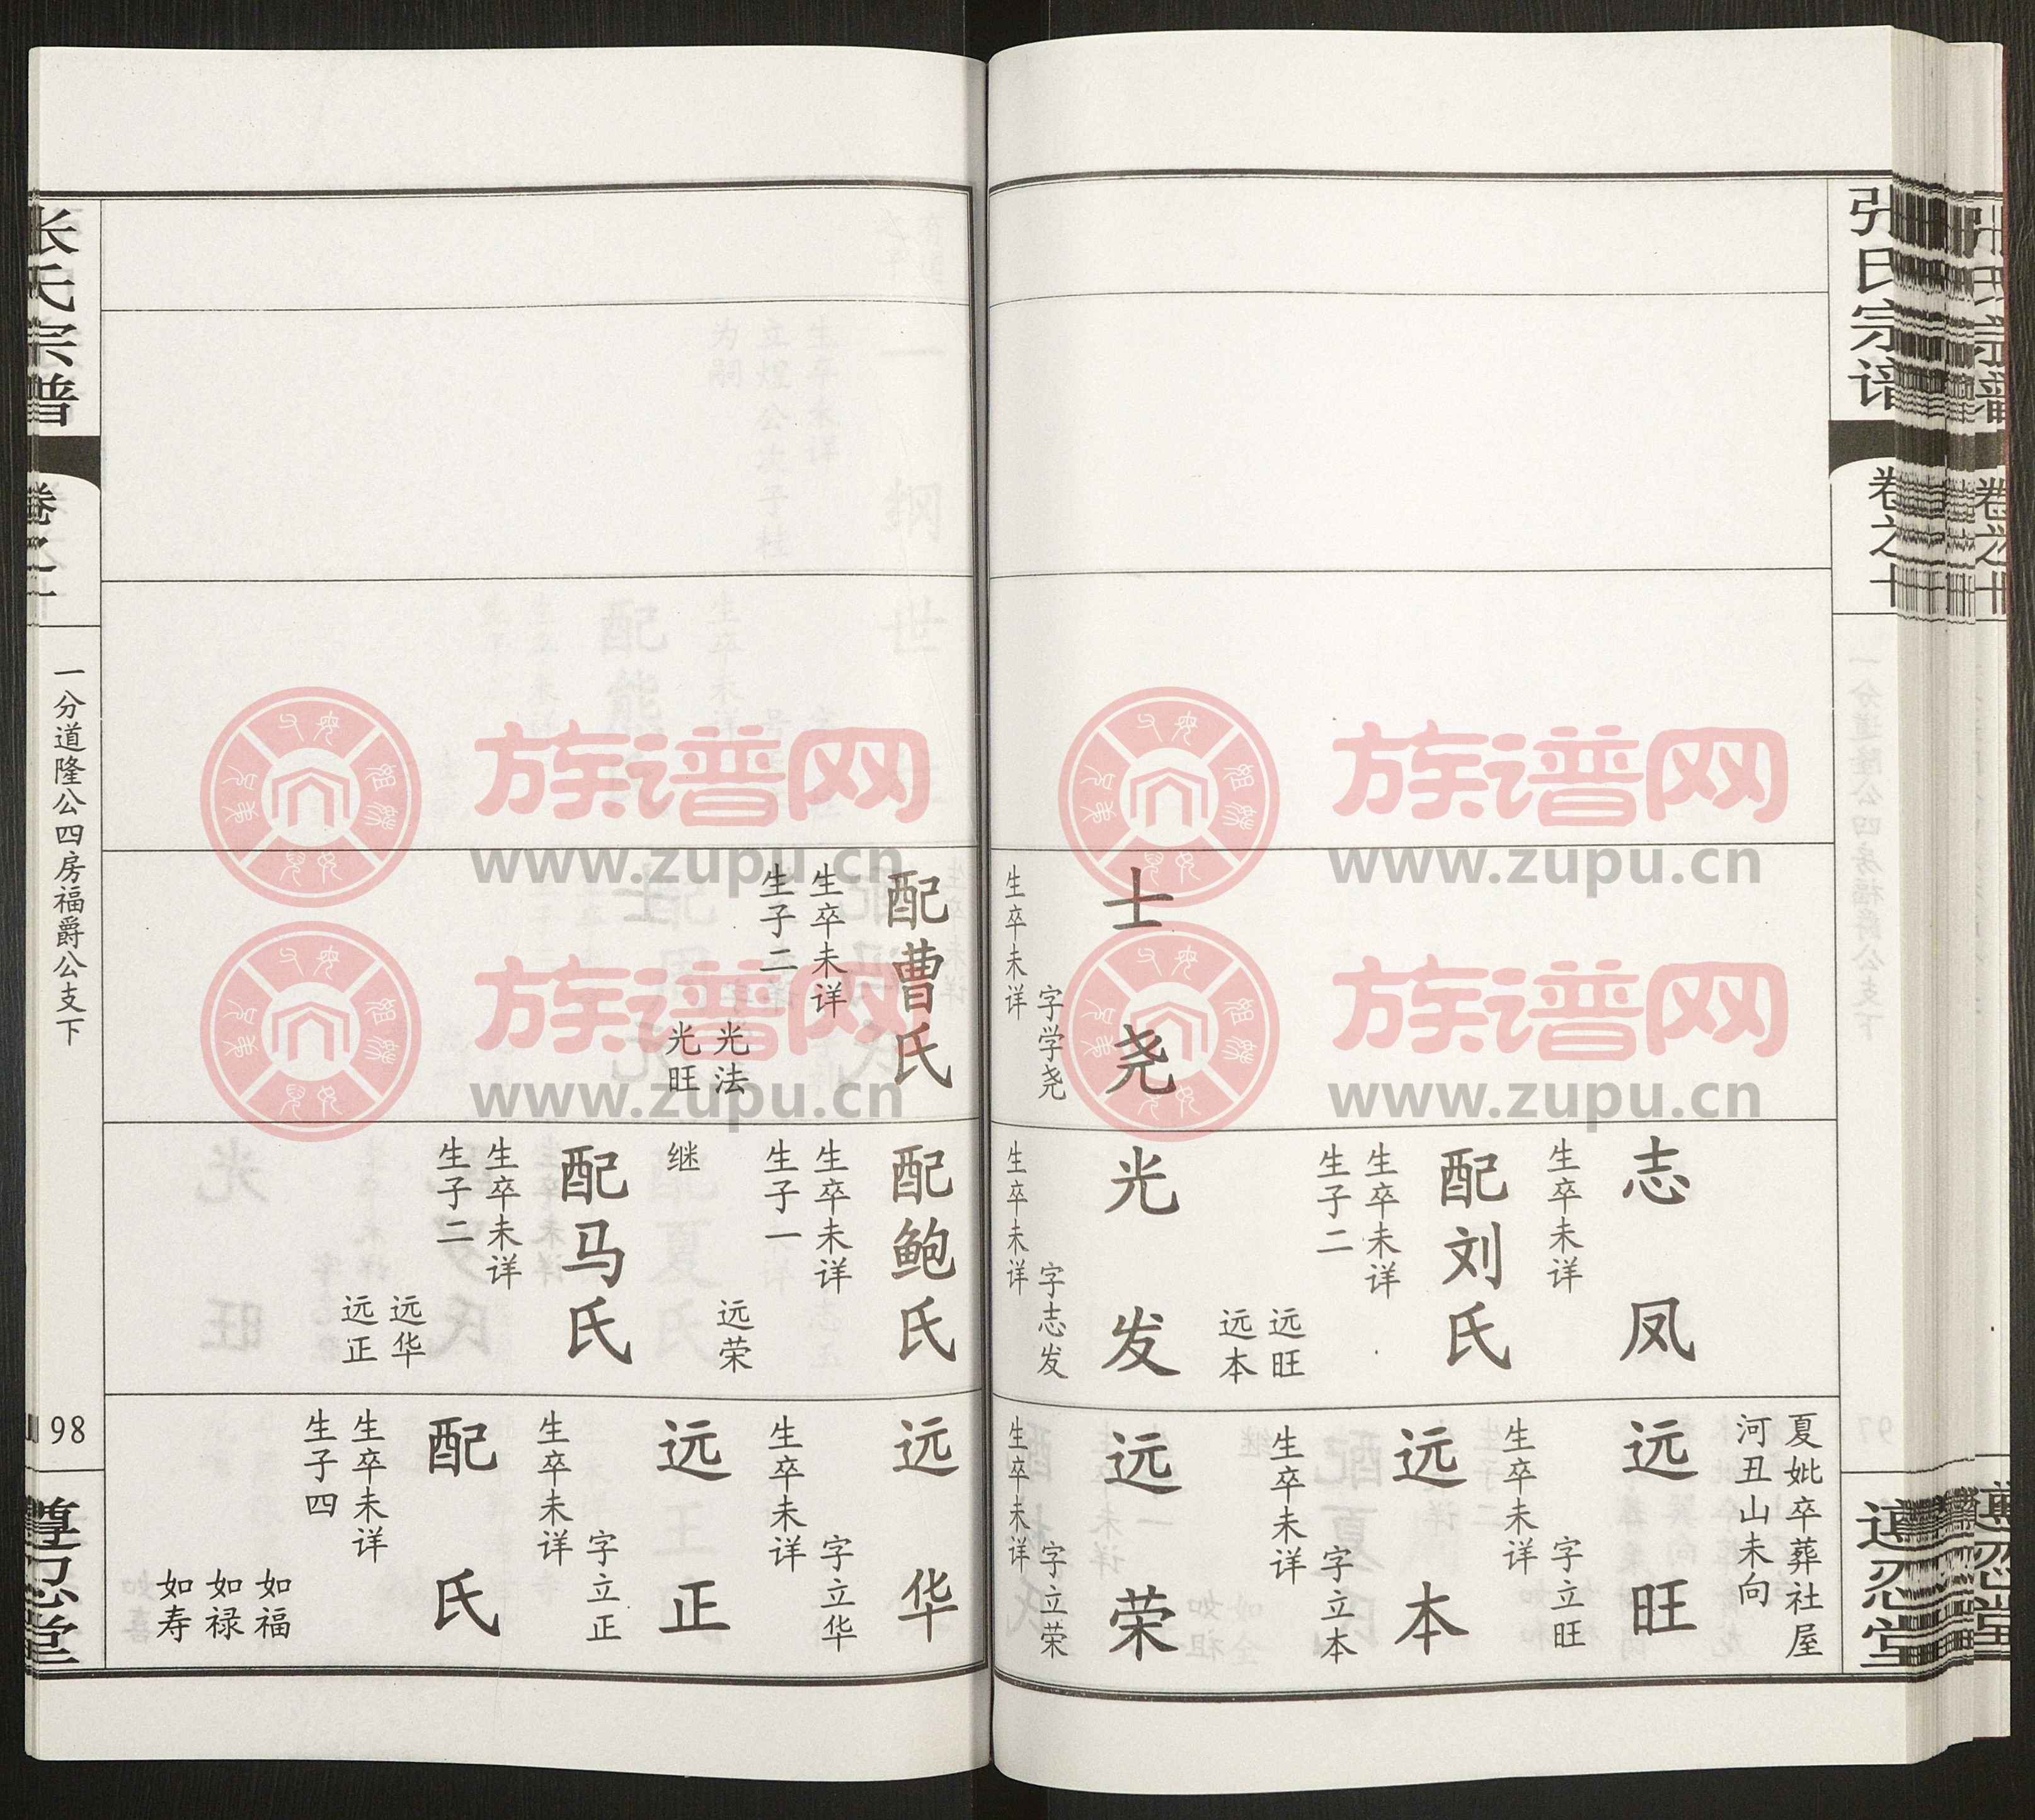 张氏宗谱
卷之十
士
尧
字学尧
生卒未详
志
凤
生卒未详
配刘氏
生卒未详
生子二
远旺
远本
光
发
字志发
生卒未详
夏妣卒葬社屋
河丑山未向
远
旺
字立旺
生卒未详
远
本
字立本
生卒未详
远
荣
字立荣
生卒未详
忍堂
配曹氏
生卒未详
生子二
光法
光旺
配鲍氏
生卒未详
生子一
远荣
继
配马氏
生卒未详
生子二
远华
远正
远
华
字立华
生卒未详
远
正
字立正
生卒未详
配
氏
生卒未详
生子四
如福
如禄
如寿
张氏宗谱
卷之十
一分道隆公四房福爵公支下
98
忍堂
族谱网
www.zupu.cn
族谱网
www.zupu.cn
族谱网
www.zupu.cn
族谱网
www.zupu.cn